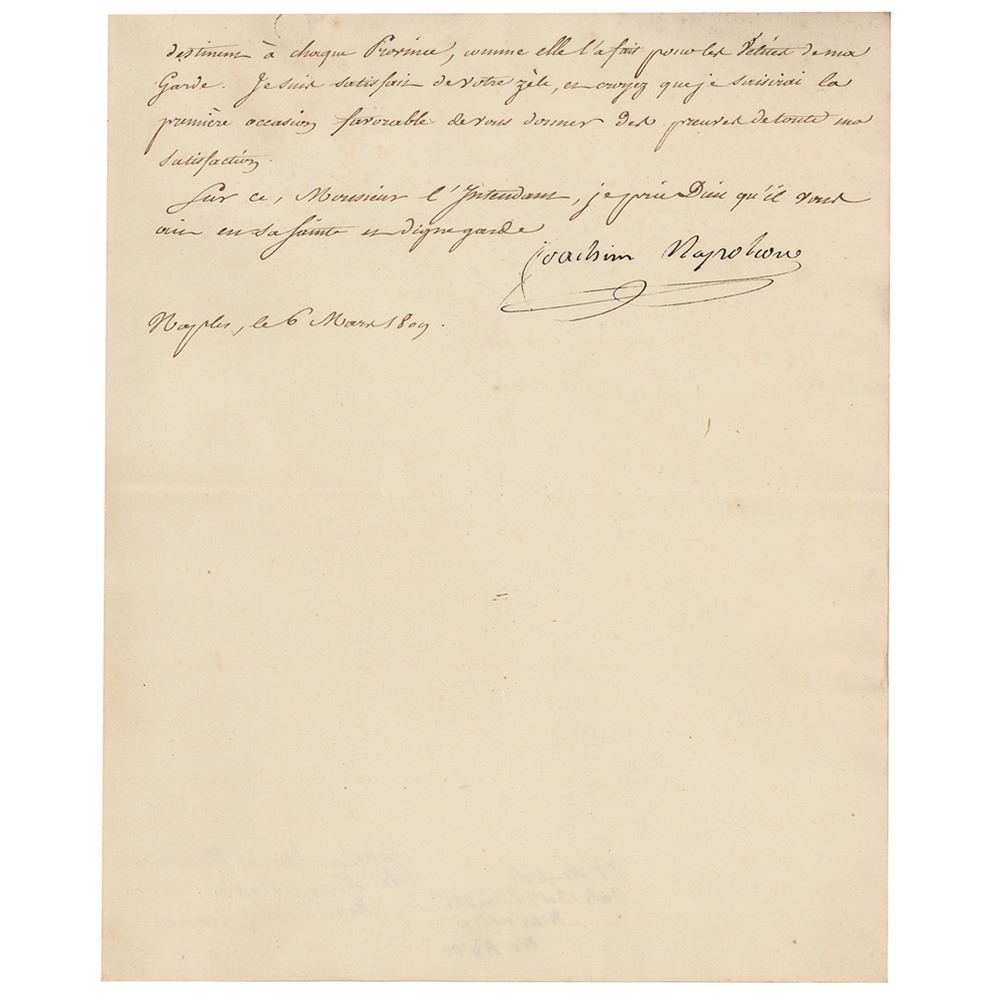 destinent à chaque Province, comme elle l'a fait pour les Vélites de ma
Garde. Je suis satisfait de votre zèle, et croyez que je saisirai la
première occasion favorable de vous donner des preuves de toute ma
satisfaction.
Sur ce, Monsieur l'Intendant, je prie Dieu qu'il vous
ait en sa Sainte et digne garde
Joachim Napoleon
Naples, le 6 Mars 1809.